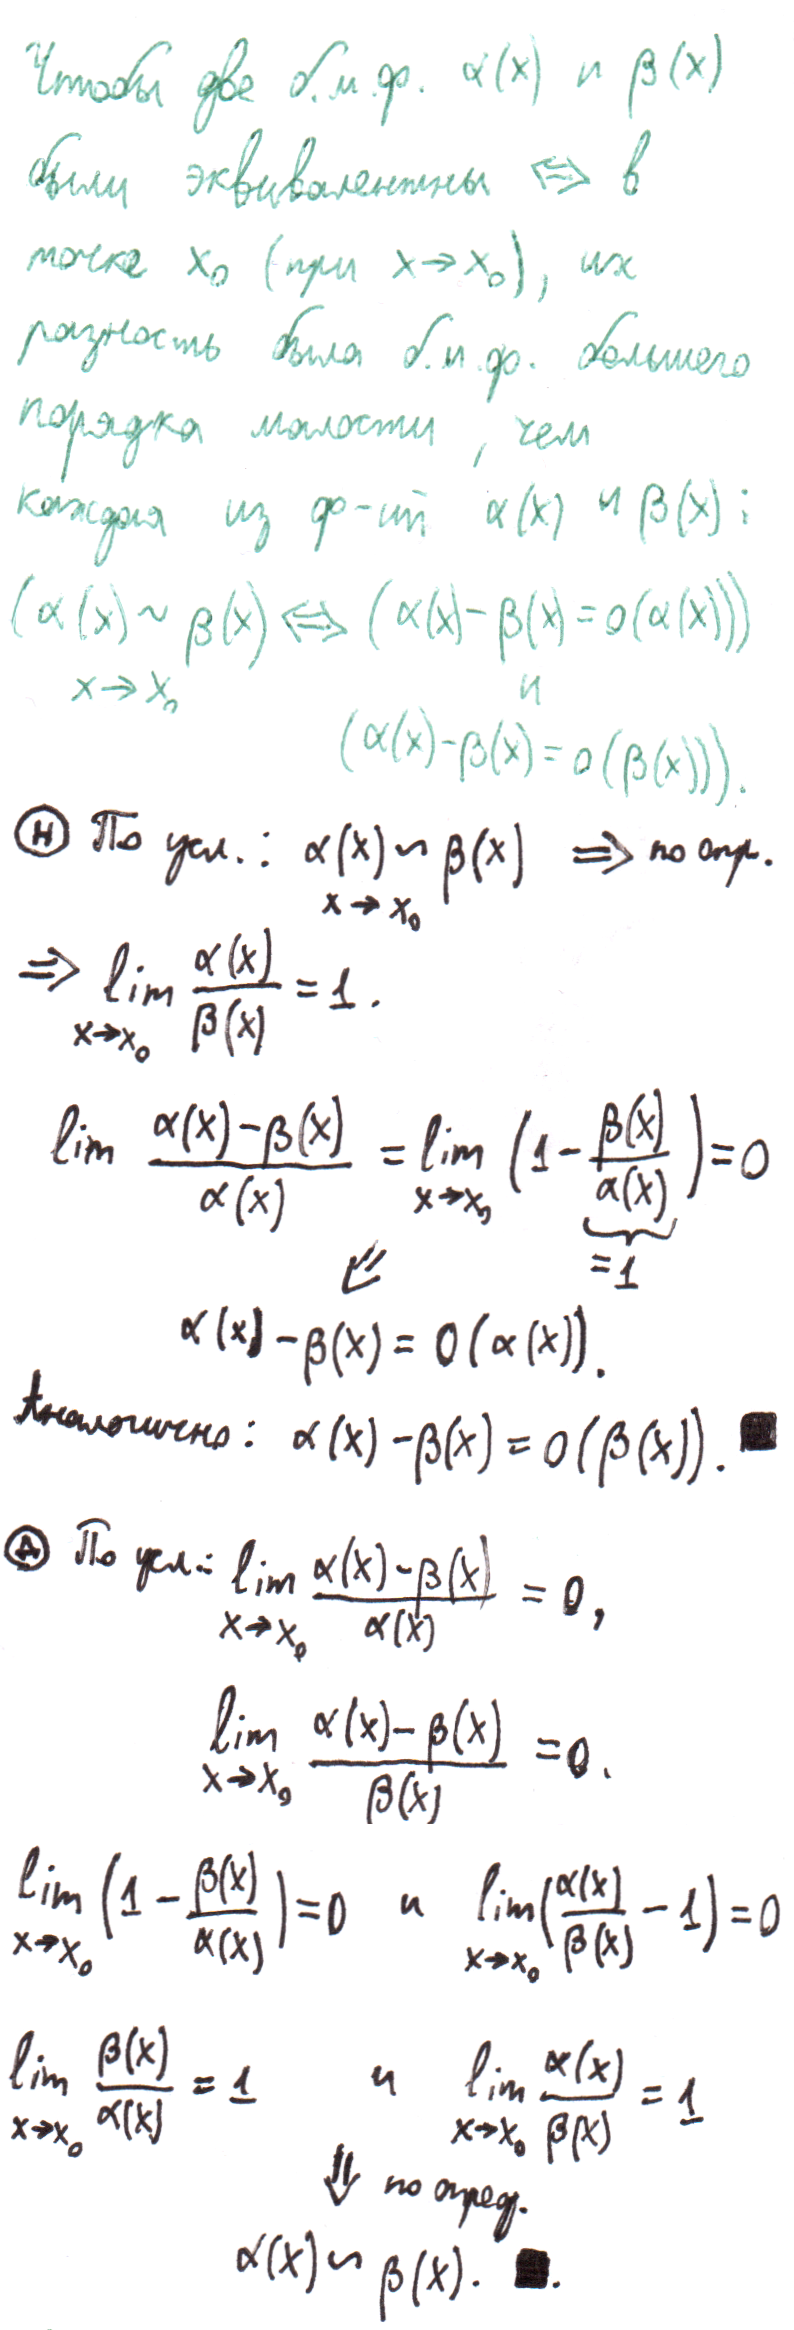 Чтобы две б.м.ф. α(x) и β(x)
были эквивалентны ⇔ в
точке x₀ (при x→x₀), их
разность была б.м.ф. большего
порядка малости, чем
каждая из ф-ий α(x) и β(x):
(α(x) ~ β(x) ⇔ (α(x)-β(x)=o(α(x)))
x→x₀ и
(α(x)-β(x)=o(β(x))).
Ⓗ По усл.: α(x) ~ β(x) ⇒ по опр.
x→x₀
⇒ lim α(x)/β(x) = 1.
x→x₀
lim (α(x)-β(x))/α(x) = lim (1 - β(x)/α(x)) = 0
x→x₀ =1
⇙
α(x)-β(x) = o(α(x)).
Аналогично: α(x)-β(x) = o(β(x)). ■
Ⓓ По усл.: lim (α(x)-β(x))/α(x) = 0,
x→x₀
lim (α(x)-β(x))/β(x) = 0.
x→x₀
lim (1 - β(x)/α(x)) = 0 и lim (α(x)/β(x) - 1) = 0
x→x₀ x→x₀
lim β(x)/α(x) = 1 и lim α(x)/β(x) = 1
x→x₀ x→x₀
⇓ по опред.
α(x) ~ β(x). ■.